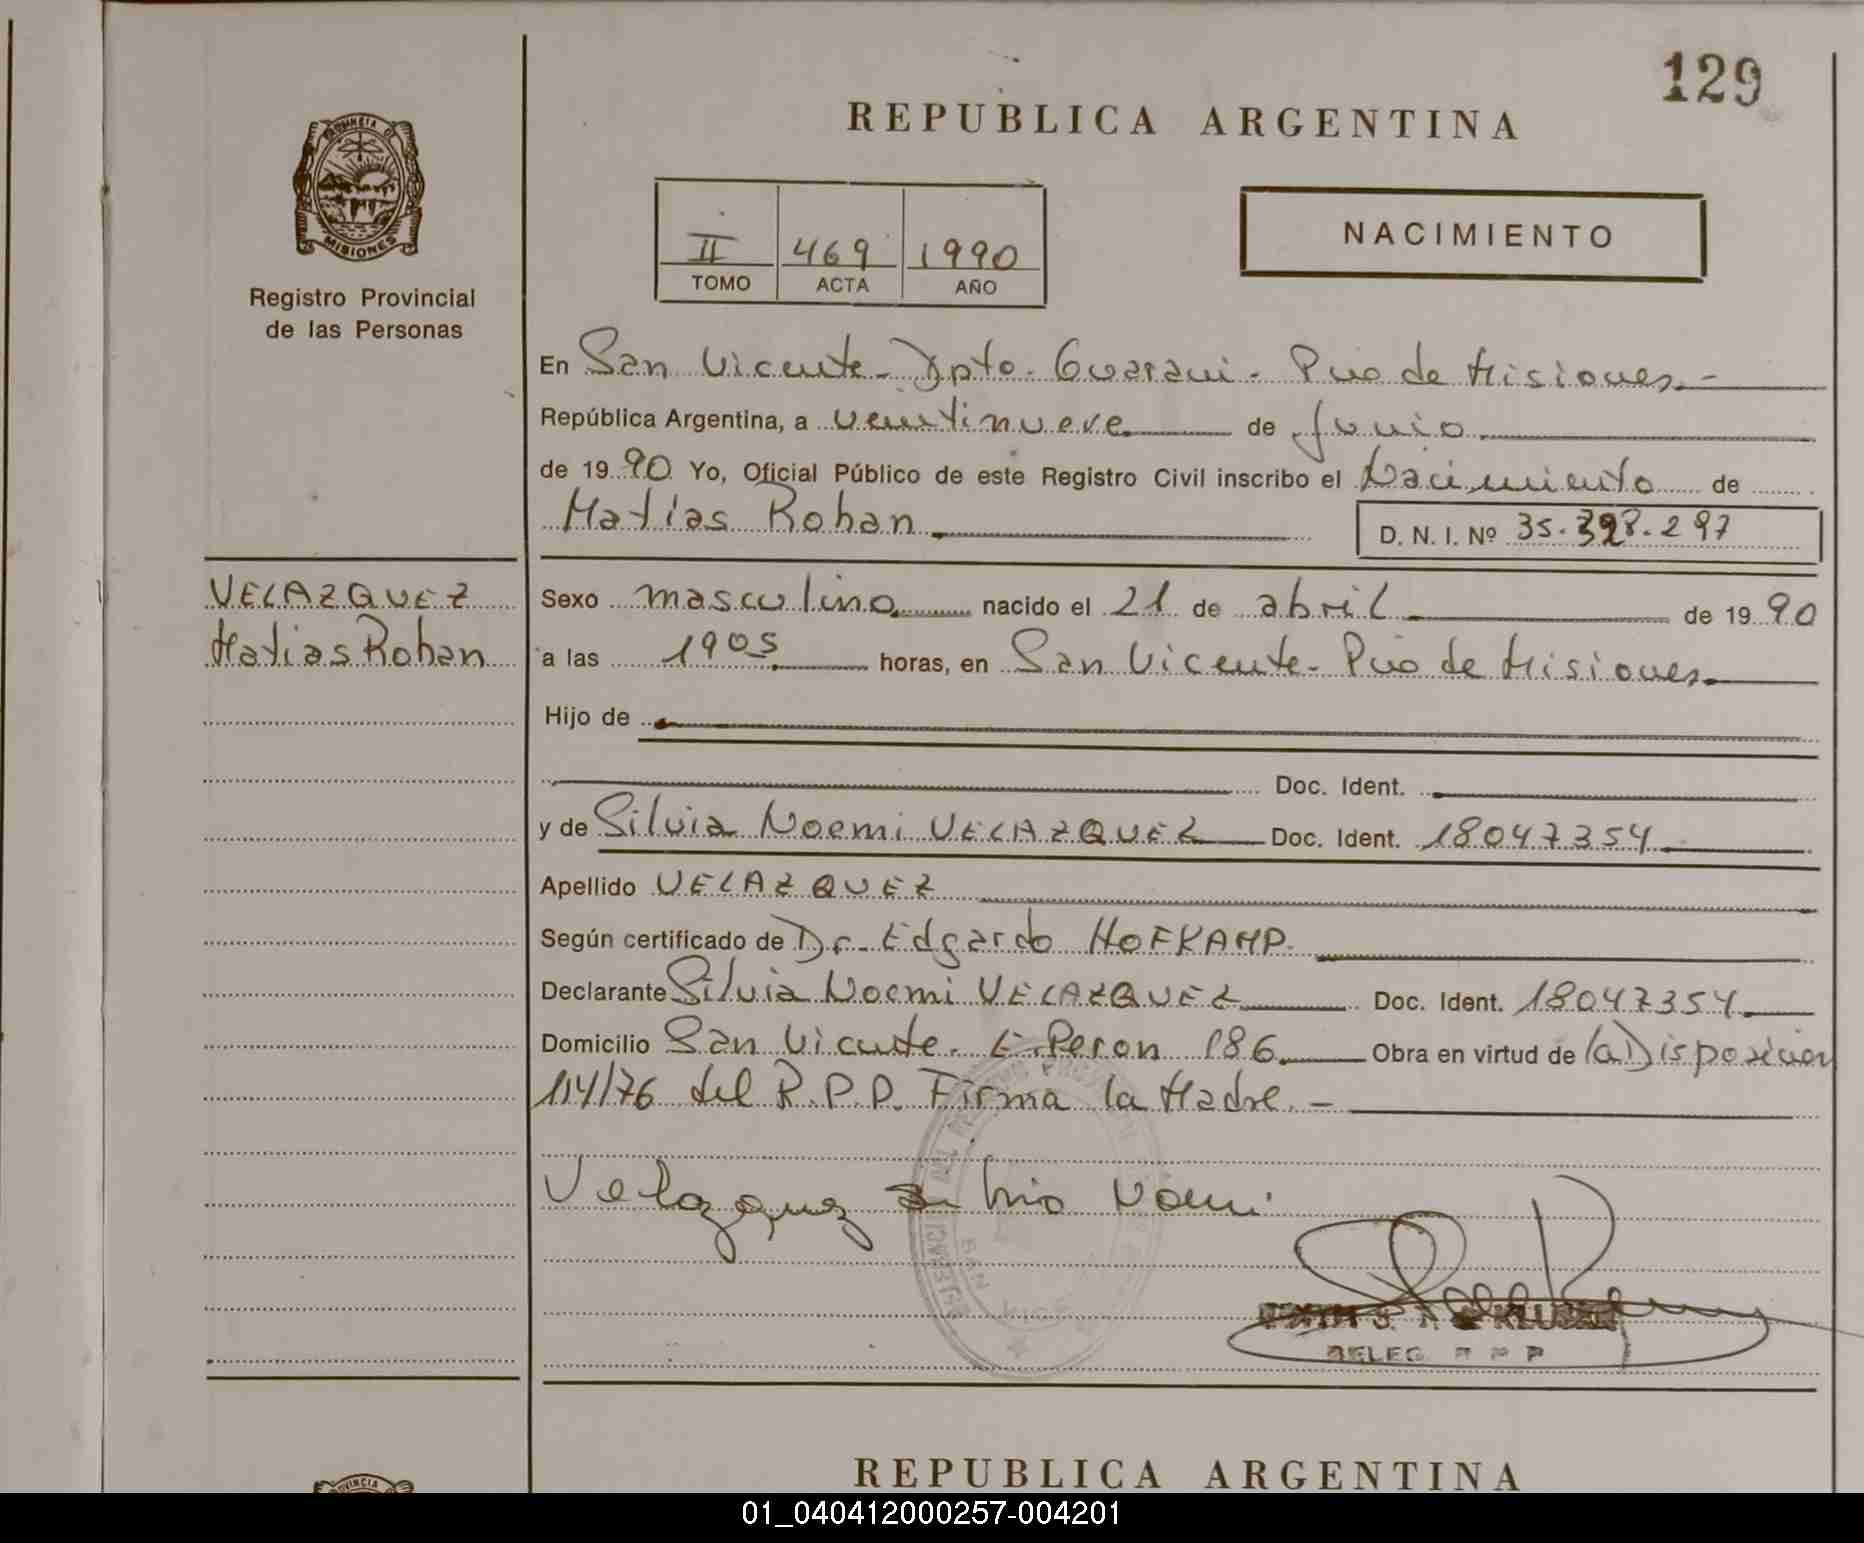 129
REPUBLICA ARGENTINA
PROVINCIA DE
MISIONES
Registro Provincial
de las Personas
II 469 1990
TOMO ACTA AÑO
NACIMIENTO
En San Vicente - Dpto. Guarani - Pvio de Misiones.-
República Argentina, a veintinueve de Junio
de 1990 Yo, Oficial Público de este Registro Civil inscribo el Nacimiento de
Matias Rohan D. N. I. Nº 35.398.297
VELAZQUEZ
Matias Rohan
Sexo masculino nacido el 21 de abril de 1990
a las 1905 horas, en San Vicente - Pvio de Misiones
Hijo de
Doc. Ident.
y de Silvia Noemi VELAZQUEZ Doc. Ident. 18047354
Apellido VELAZQUEZ
Según certificado de Dr. Edgardo HOFKAMP.
Declarante Silvia Noemi VELAZQUEZ Doc. Ident. 18047354
Domicilio San Vicente. E. Peron 186 Obra en virtud de la Disposicion
114/76 del R.P.P. Firma la Madre.-
Velazquez Silvia Noemi
DELEG. R P P
REPUBLICA ARGENTINA
01_040412000257-004201